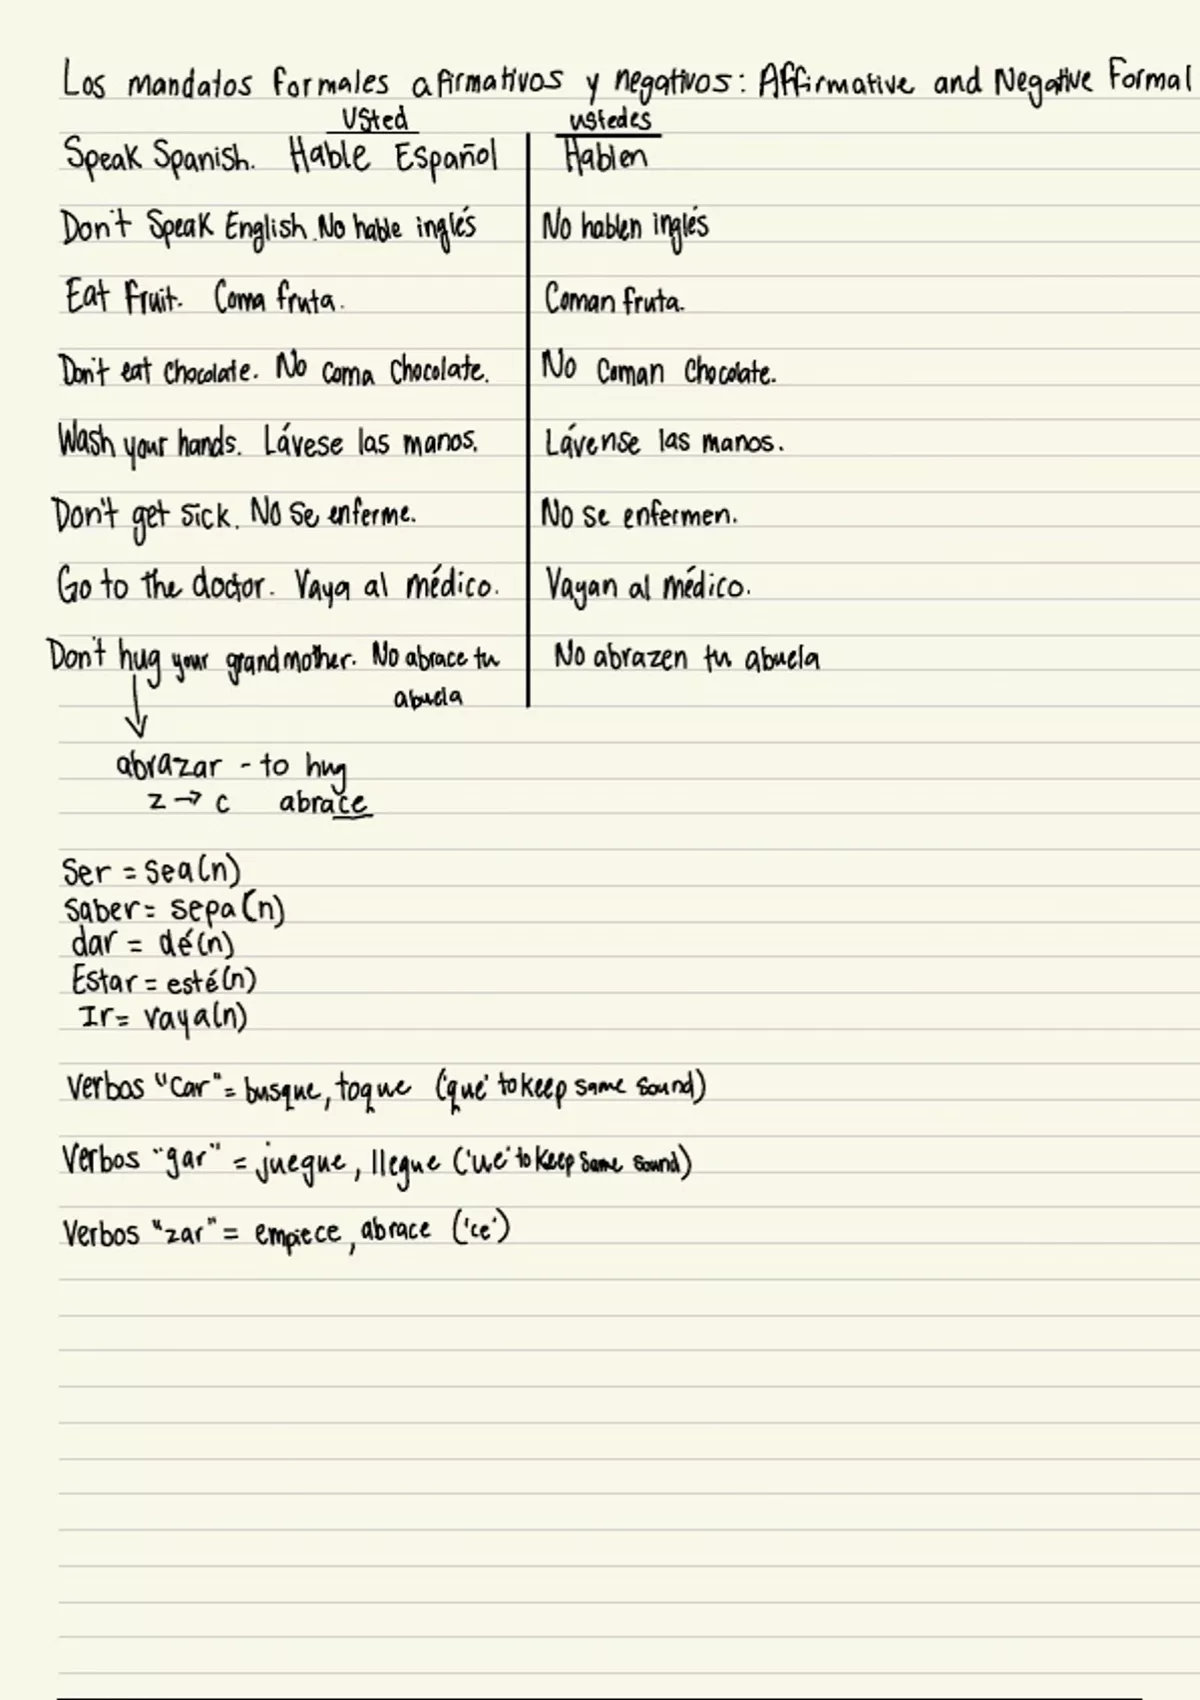 Los mandatos formales afirmativos y negativos: Affirmative and Negative Formal
Usted ustedes
Speak Spanish. Hable Español Hablen
Don't Speak English. No hable inglés No hablen inglés
Eat fruit. Coma fruta. Coman fruta.
Don't eat chocolate. No coma chocolate. No coman chocolate.
Wash your hands. Lávese las manos. Lávense las manos.
Don't get sick. No se enferme. No se enfermen.
Go to the doctor. Vaya al médico. Vayan al médico.
Don't hug your grandmother. No abrace tu No abrazen tu abuela
abuela
abrazar - to hug
z → c abrace
Ser = sea(n)
Saber = sepa(n)
dar = dé(n)
Estar = esté(n)
Ir = vaya(n)
Verbos "car" = busque, toque ('que' to keep same sound)
Verbos "gar" = juegue, llegue ('ue' to keep same sound)
Verbos "zar" = empiece, abrace ('ce')